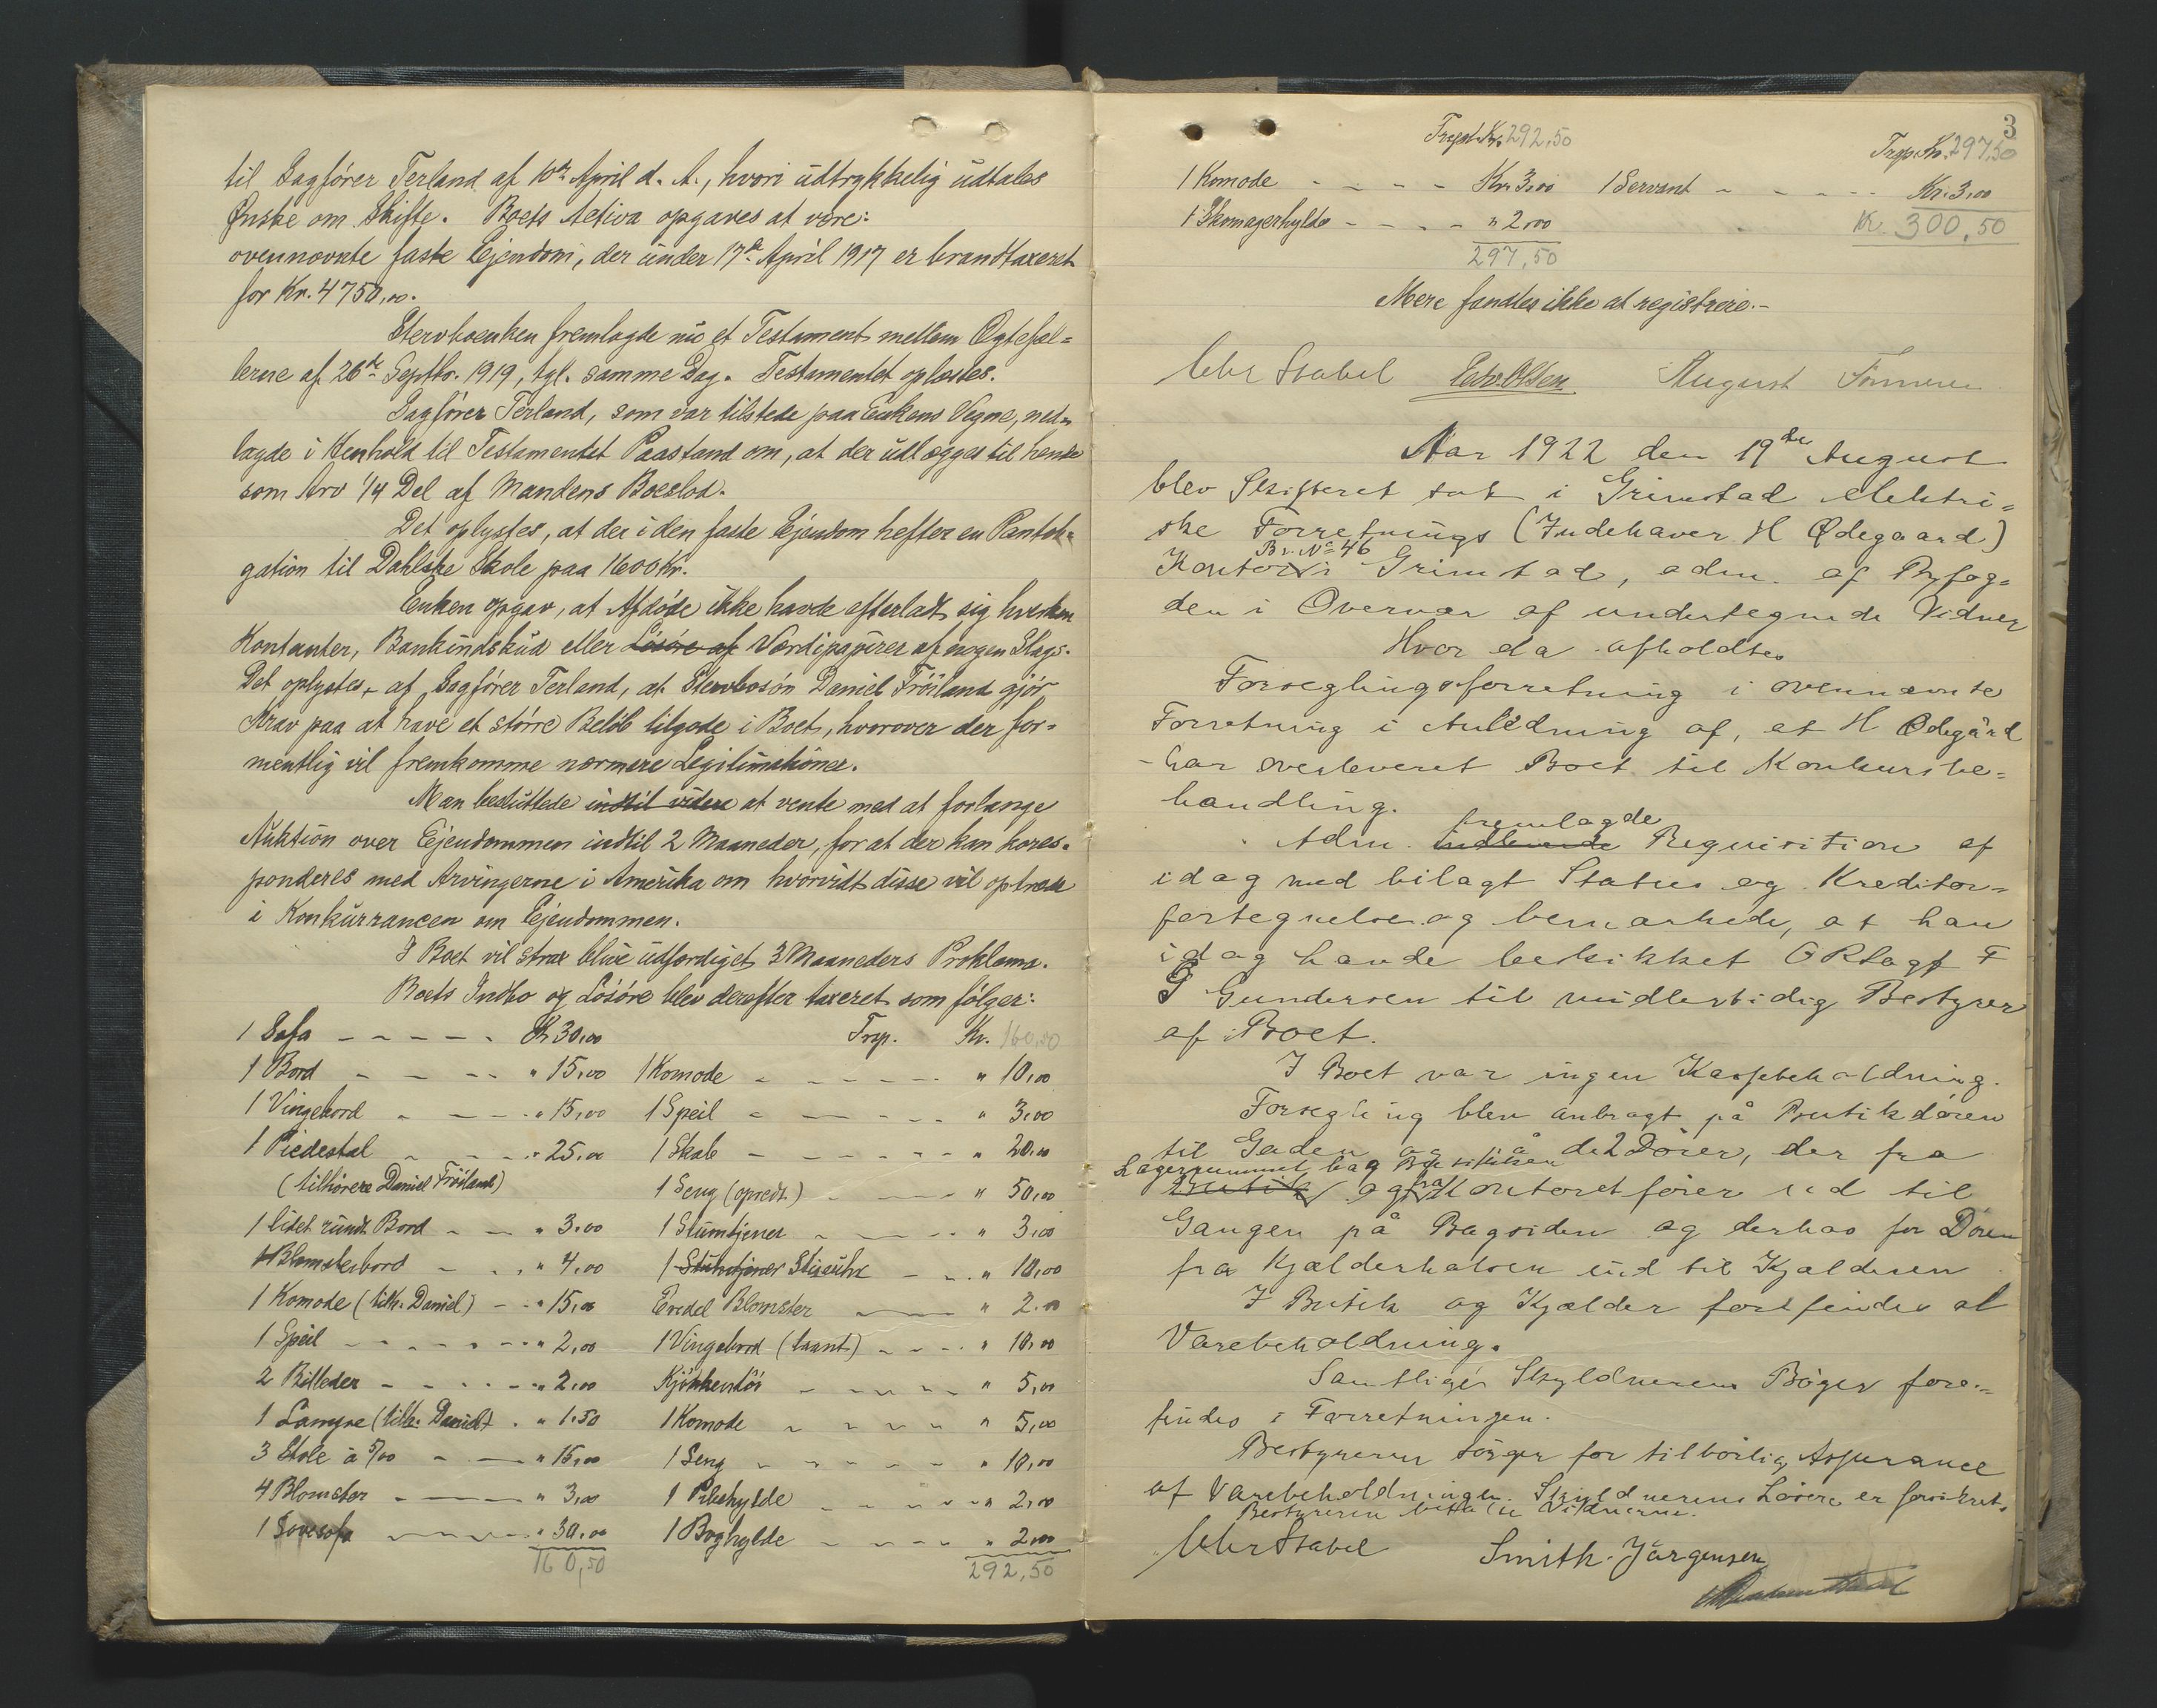 til Sagfører Terland af 10de April d. A., hvori udtrykkelig udtales
Ønske om Skifte. Boets Activa opgaves at være:
ovennævnte faste Ejendom, der under 17de April 1917 er brandtaxeret
for Kr. 4750,00.
Stervboenken fremlagde nu et Testament mellem Ægtefæl=
lerne af 26de Septbr. 1919, tgl. samme Dag. Testamentet oplæstes.
Sagfører Terland, som var tilstede paa Enkens Vegne, ned=
lagde i Henhold til Testamentet Paastand om, at der udlægges til hende
som Arv 1/4 Del af Mandens Boeslod.
Det oplystes, at der i den faste Ejendom hefter en Pantob=
gation til Dahlske Skole paa 1600 Kr.
Enken opgav, at Afdøde ikke havde efterladt sig hverken
Kontanter, Bankindskud eller Løsøre af Værdipapirer af nogen Slags.
Det oplystes af Sagfører Terland, at Stervbosøn Daniel Frøisland gjør
Krav paa at have et større Beløb tilgode i Boet, hvorover der for=
mentlig vil fremkomme nærmere Legitimationer.
Man besluttede indtil videre at vente med at forlange
Auktion over Ejendommen indtil 2 Maaneder, for at der kan korres=
ponderes med Arvingerne i Amerika om hvorvidt disse vil optræde
i Konkurrancen om Ejendommen.
I Boet vil strax blive udfærdiget 3 Maaneders Proklama.
Boets Indbo og Løsøre blev derefter taxeret som følger:
1 Sofa - - - - - Kr 30,00 Trsp. Kr. 160,50
1 Bord - - - - " 15,00 1 Komode - - - - - " 10,00
1 Vingebord - - - - " 15,00 1 Speil - - - - - " 3,00
1 Piedestal - - - " 25,00 1 Skab - - - - - " 20,00
(tilhører Daniel Frøisland) 1 Seng (opredt.) - - - " 50,00
1 lidet rundt Bord - - - " 3,00 1 Stumtjener - - - - " 3,00
1 Blomsterbord - - - " 4,00 1 Stumtjener Stueuhr - - - " 10,00
1 Komode (tilh. Daniel) - - " 15,00 Endel Blomster - - " 2,00
1 Speil - - - - - - " 2,00 1 Vingebord (laant) - - - - " 10,00
2 Billeder - - - - - " 2,00 Kjøkkentøi - - - - - " 5,00
1 Lampe (tilh. Daniel) - " 1.50 1 Komode - - - - - " 5,00
3 Stole à 5/00 - - " 15,00 1 Seng - - - - - - " 10,00
4 Blomster - - - " 3,00 1 Pibehylde - - - - - " 2,00
1 Sovesofa - - - - " 30,00 1 Boghylde - - - - - " 2,00
160,50 292,50
3
Trsp. Kr. 292,50 Trsp. Kr. 297,50
1 Komode - - - - Kr. 3,00 1 Servant - - - - - Kr. 3,00
1 Skomagerhylde - - - - " 2,00 Kr. 300,50
297,50
Mere fandtes ikke at registrere. -
Chr Stabel Edv. Olsen August
Aar 1922 den 19de August
blev Skifteret sat i Grimstad elektri=
ske Forretnings (Indehaver H Ødegaard)
Br. No 46
Kontor i Grimstad, adm. af Byfog=
den i Overvær af undertegnede Vidner
Hvor da afholdtes
Forseglingsforretning i ovennævnte
Forretning i Anledning af, at H Ødegård
har overleveret Boet til Konkursbe=
handling.
fremlagde
Adm. Requisition af
idag med bilagt Status og Kreditor=
fortegnelse og bemærkede, at han
idag havde beskikket ORsagf F
G Gundersen til midlertidig Bestyrer
af Boet.
I Boet var ingen Kassebeholdning.
Forsegling blev anbragt på Butikdøren
til Gaden og på de 2 Dører, der fra
Lagerrummet bag Butikken
Butik og fra Kontoret fører ud til
Gangen på Bagsiden og derhos for Døren
fra Kjælderhalsen ind til Kjælderen
I Butik og Kjælder forefindes al
Varebeholdning.
Samtlige Skyldnerens Bøger fore=
findes i Forretningen.
Bestyreren sørger for tilbørlig Assurance
af Varebeholdningen. Skyldnerens Løsøre er forsikret.
Bestyreren betalte Vidnerne.
Chr Stabel Smith-Jørgensen